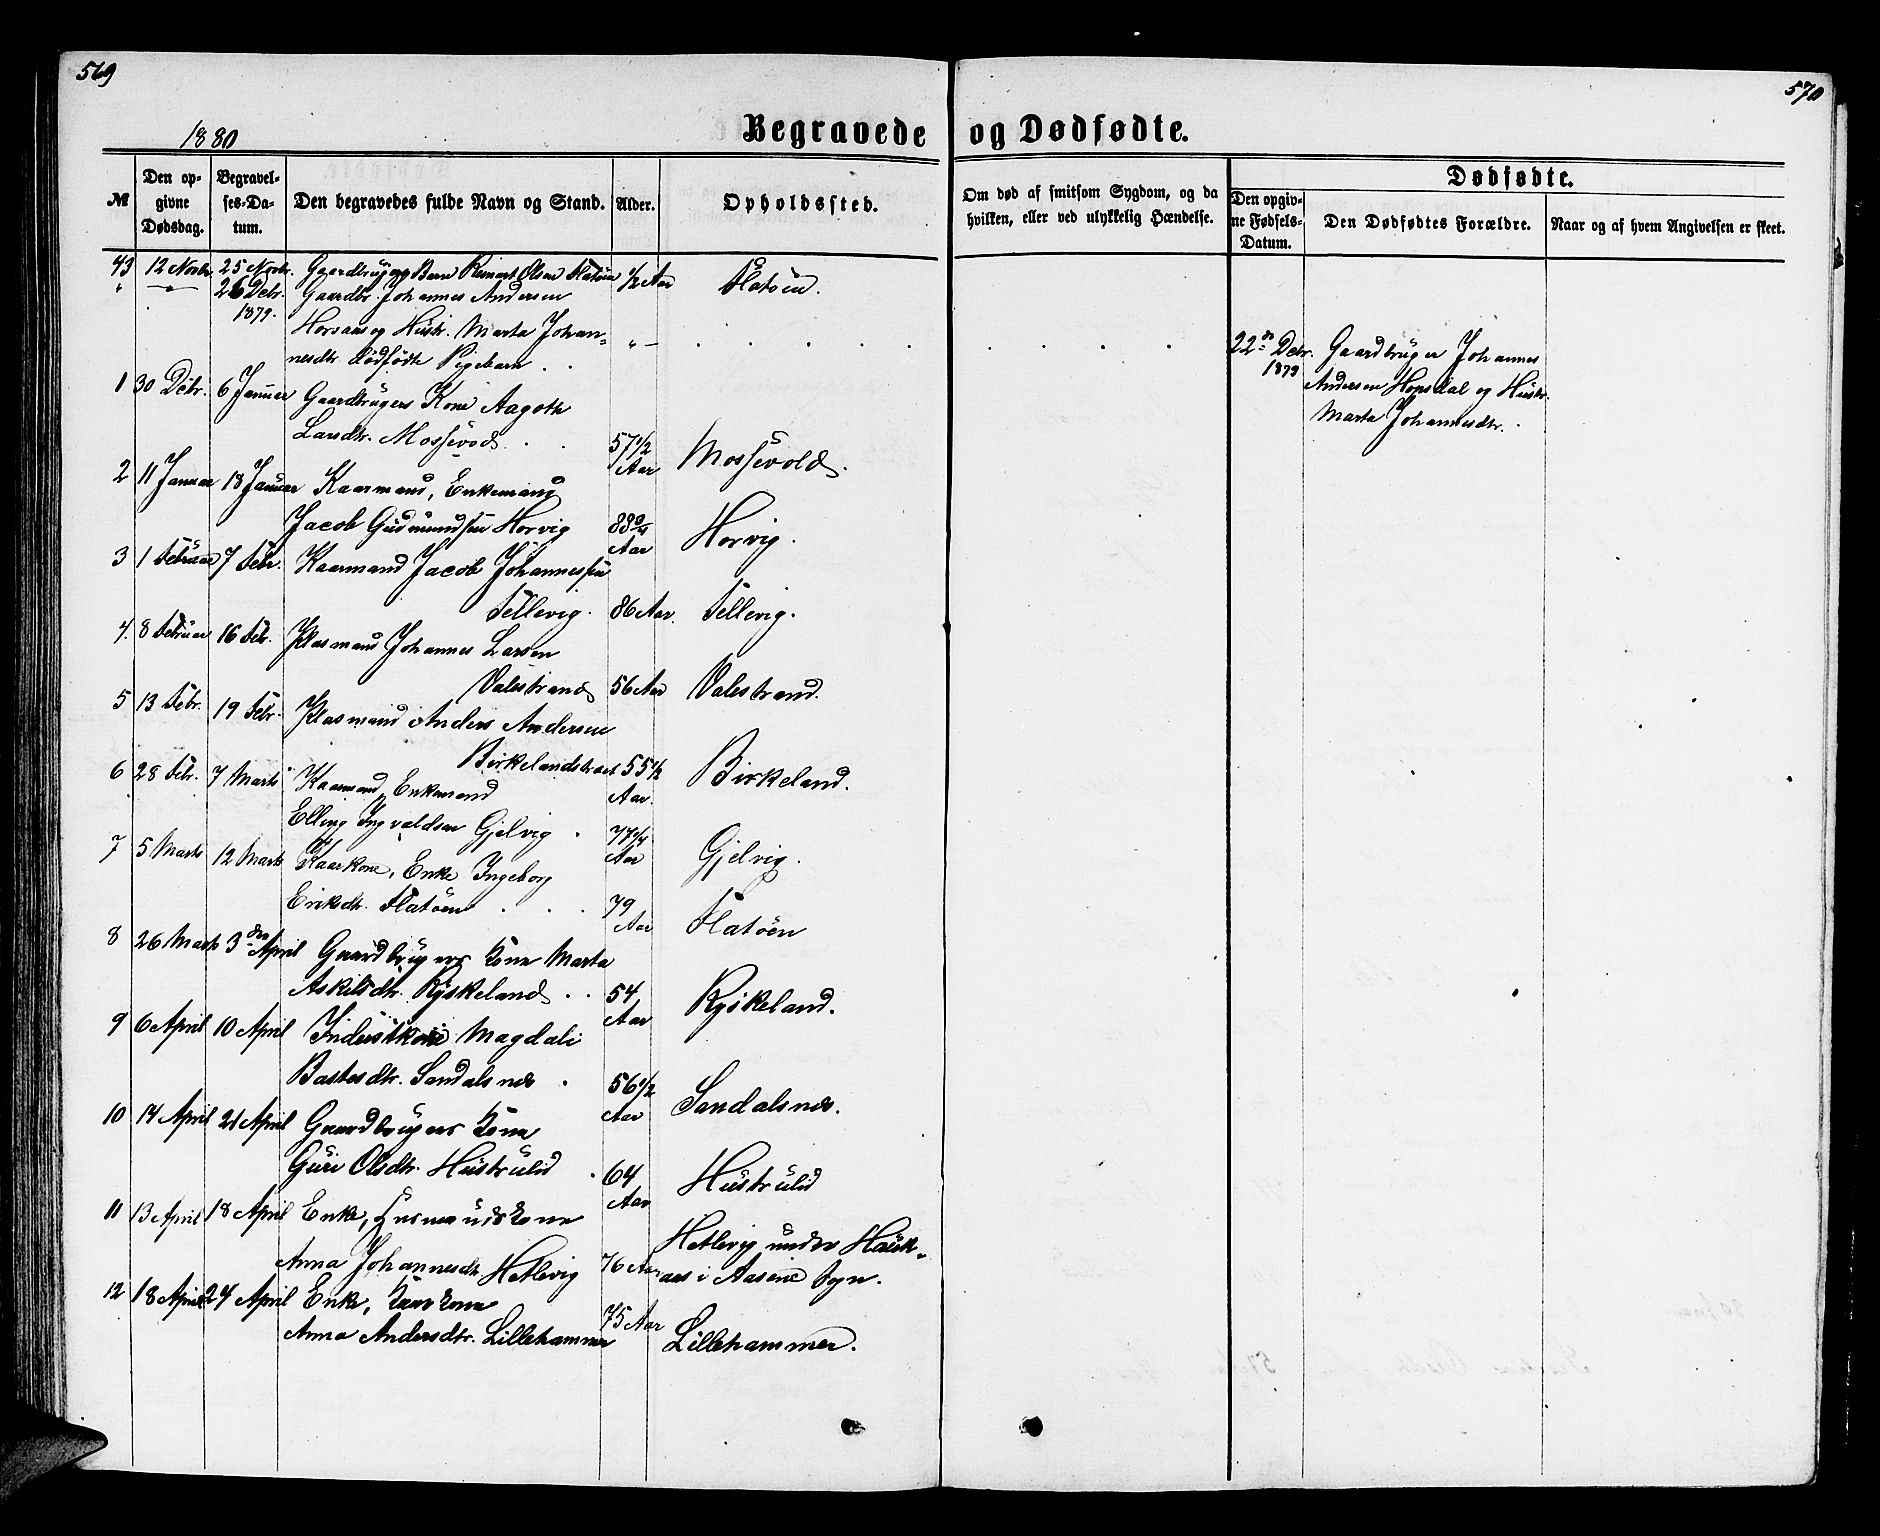 569
570
1880
Begravede og Dødfødte.
№
Den opgivne Dødsdag.
Begravelses-Datum.
Den begravedes fulde Navn og Stand.
Alder.
Opholdssted.
Om død af smitsom Sygdom, og da hvilken, eller ved ulykkelig Hændelse.
Dødfødte.
Den opgivne Fødsels-Datum.
Den Dødfødtes Forældre.
Naar og af hvem Angivelsen er skeet.
43 12 Novbr. 25 Novbr. Gaardbrugers Barn Reinart Olsen Flatöen 1/2 Aar Flatöen.
" — " — 26 Debr. 1879. Gaardbr. Johannes Andersen
og Hustr. Marta Johan-
nesdtr. dödfödte Pigebarn . . " —
22de Debr. 1879 Gaardbruger Johannes
Andersen Hopsdal og Hustr.
Marta Johannesdtr.
1 30 Debr. 6 Januer Gaardbrugers Kone Aagoth
Larsdtr. Mossevold . . 57 1/2 Aar Mossevold.
2 11 Januar 18 Januar Kaarmand, Enkemand
Jacob Gudmundsen Horvig 88 Aar Horvig.
3 1 Februar 7 Febr. Kaarmand Jacob Johannessen
Tellevig. 86 Aar. Tellevig.
4. 8 Februar 16 Febr. Plasmand Johannes Larsen
Valestrand 56 Aar Valestrand.
5 13 Febr. 19 Febr. Plasmand Anders Andersen
Birkelandstræet 55 1/2 Aar. Birkeland.
6 28 Febr. 7 Marts Kaarmand, Enkemand
Elling Ingvaldsen Gjelvig . 77 Aar Gjelvig.
7 5 Marts 12 Marts Kaarkone, Enke Ingeborg
Eriksdtr. Flatöen . . . 79 Aar Flatöen
8 26 Marts 3die April Gaardbrugers Kone Marta
Askildsdtr. Ryskeland . . 54 Aar Ryskeland.
9 6 April 10 April Inderstkone Magdali
Bastesdtr. Sandalsnes . 56 1/2 Aar Sandalsnes.
10 14 April 21 April Gaardbrugers Kone
Guri Olsdtr. Hustrulid . 64 Aar Hustrulid
11 13 April 18 April Enke, Husmandskone
Anna Johannesdtr Hetlevig 76 Aar Hetlevig under Hauk-
aas i Aasene Sogn.
12 18 April 24 April Enke, Kaarkone
Anna Andersdtr. Lillehammer 75 Aar Lillehammer.